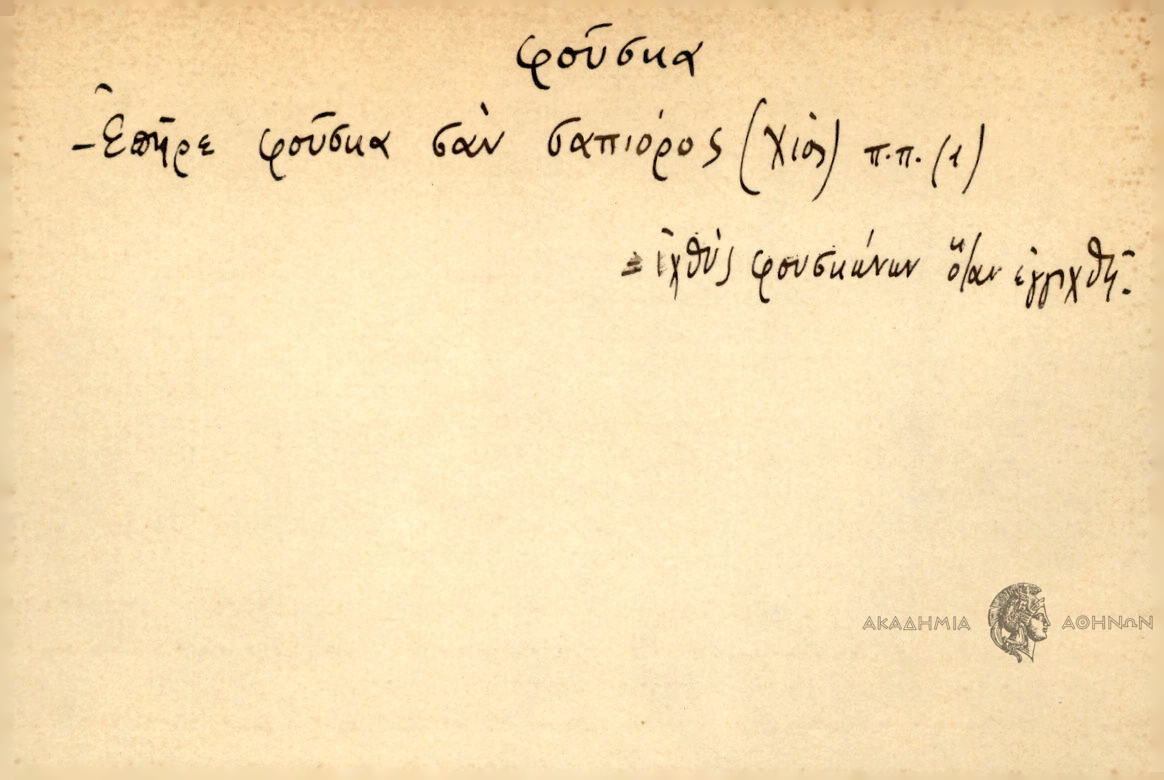 φοῦσκα
- Ἐπῆρε φοῦσκα σὰν σαπιόρος (Χίος) π.π. (1)
= ἰχθὺς φουσκώνων ὅταν ἐγγιχθῇ.
ΑΚΑΔΗΜΙΑ ΑΘΗΝΩΝ